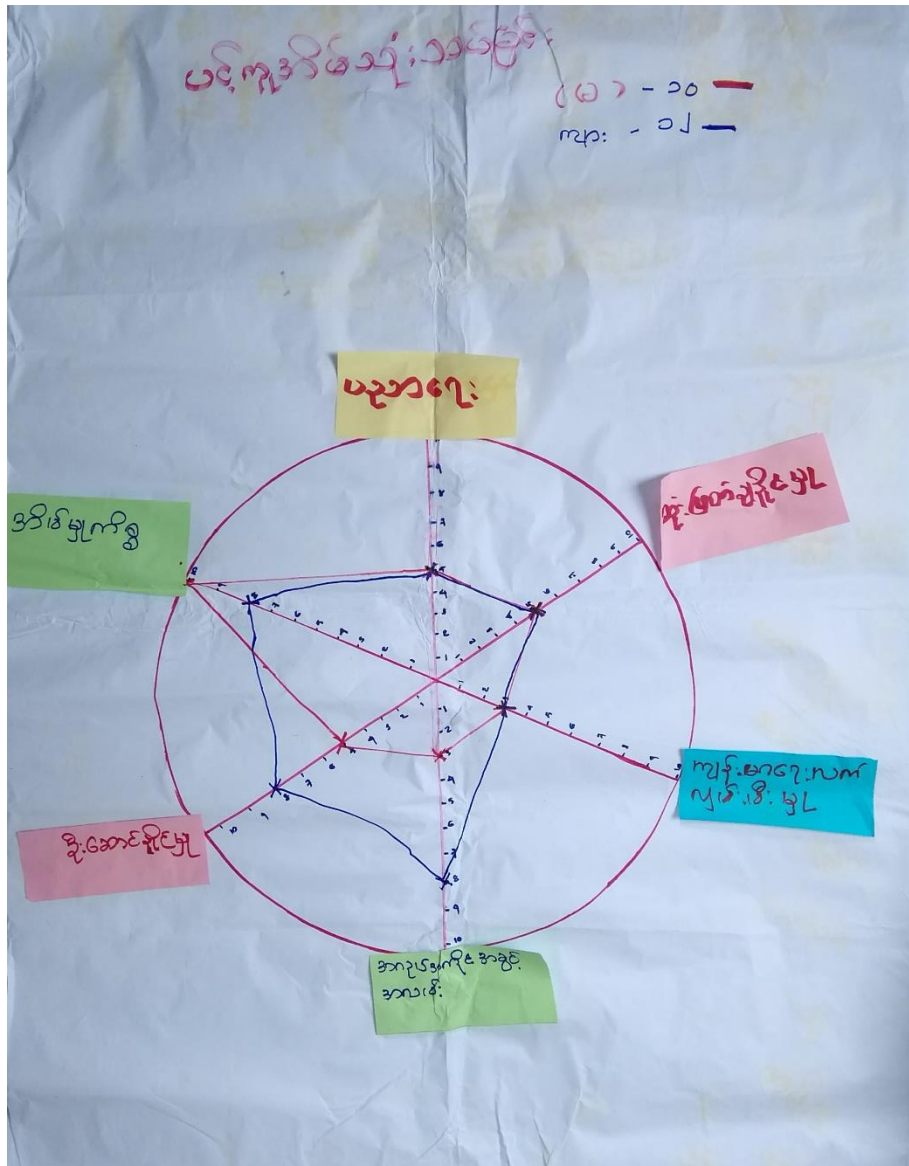 ပင့်ကူအိမ်သုံးသပ်ခြင်း
(မ) - ၁၀
ကျား - ၁၂
ပညာရေး
ဆုံးဖြတ်ချနိုင်မှု
ကျန်းမာရေးလက်
လှမ်းမီးမှု
အရည်အသွေး အခွင့်
အလမ်း
ဦးဆောင်နိုင်မှု
အိမ်မှုကိစ္စ